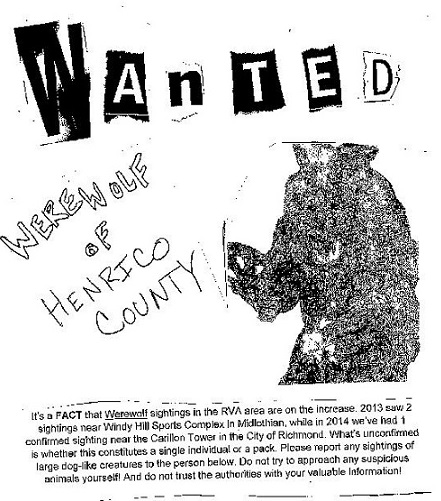 WANTED
WEREWOLF
OF
HENRICO
COUNTY
It's a FACT that Werewolf sightings in the RVA area are on the increase. 2013 saw 2
sightings near Windy Hill Sports Complex in Midlothian, while in 2014 we've had 1
confirmed sighting near the Carillon Tower in the City of Richmond. What's unconfirmed
is whether this constitutes a single individual or a pack. Please report any sightings of
large dog-like creatures to the person below. Do not try to approach any suspicious
animals yourself! And do not trust the authorities with your valuable information!